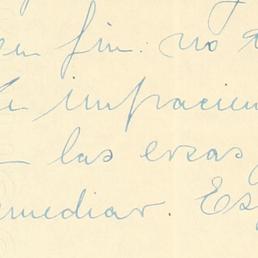 en fin: no
impacien
las cosas
emediar. Es